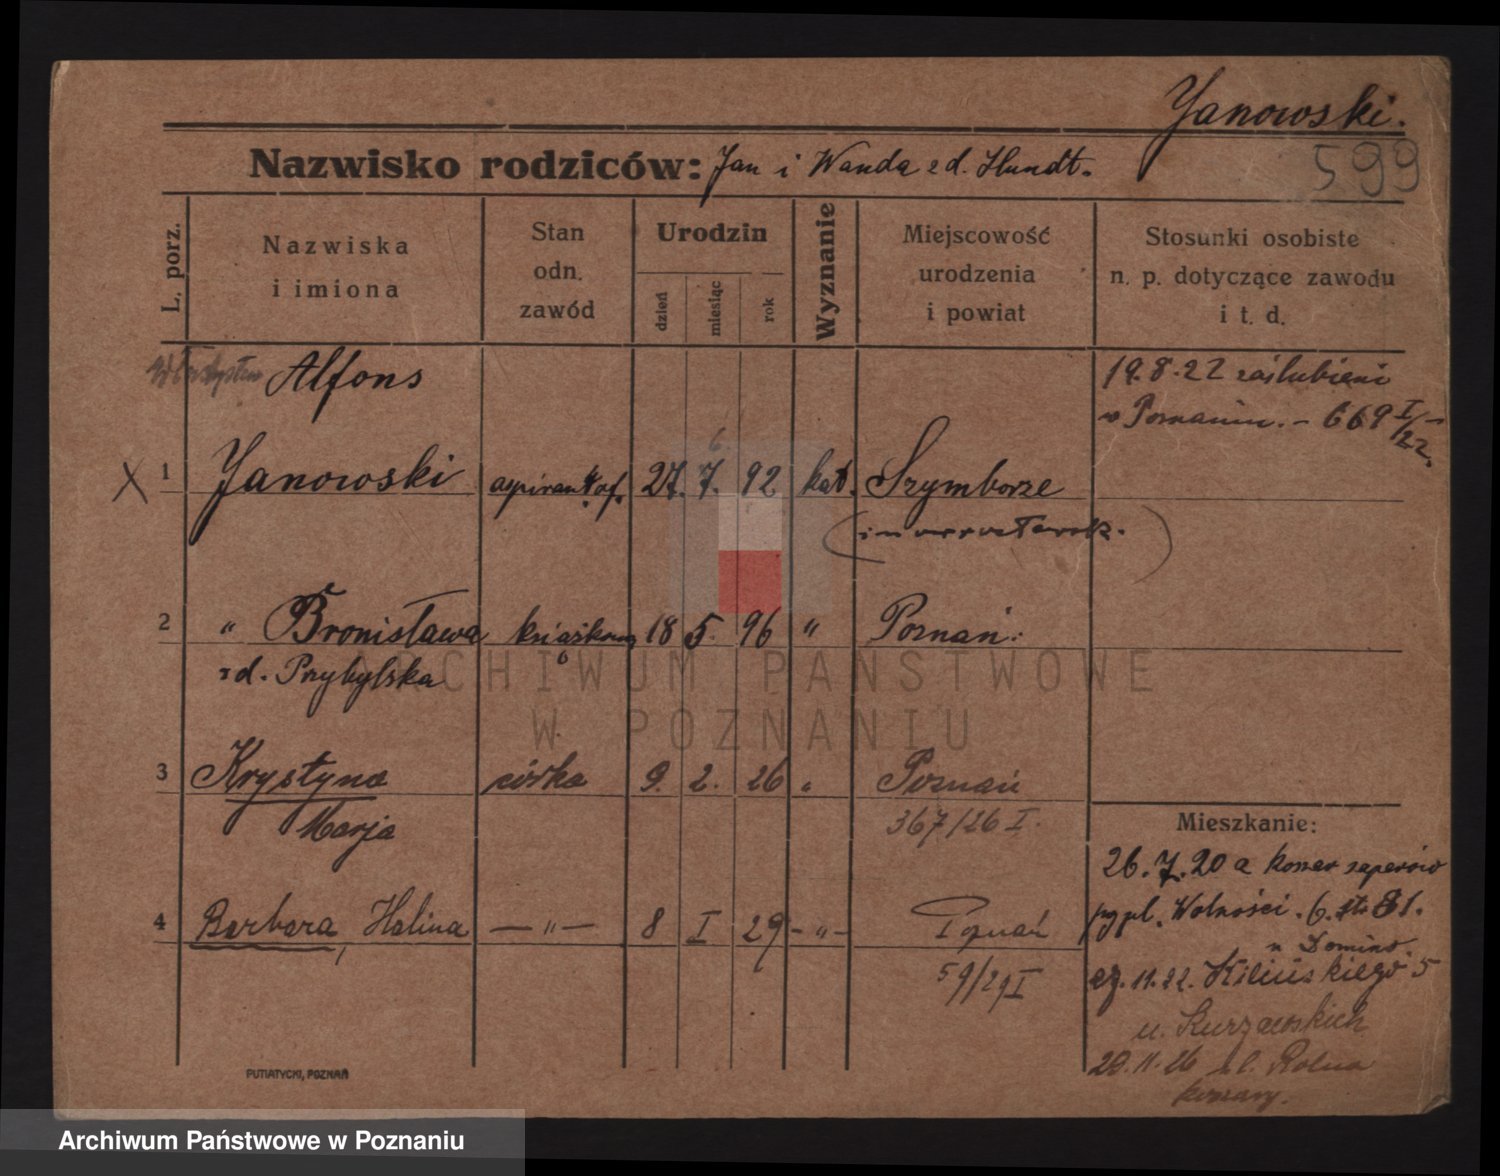 Janowski.
599
Nazwisko rodziców: Jan i Wanda zd. Hundt.
L. porz.
Nazwiska i imiona
Stan odn. zawód
Urodzin
dzień
miesiąc
rok
Wyznanie
Miejscowość urodzenia i powiat
Stosunki osobiste n. p. dotyczące zawodu i t. d.
Alfons
19.8.22 zaślubieni
w Poznaniu. - 669 I/22
6
X 1 Janowski aspirant of. 27. 7. 92 kat. Szymborze
2 " Bronisława 18 5. 96 " Poznań.
zd. Przybylska
3 Krystyna córka 9. 2. 26 " Poznań
Marja
367/26 I.
Mieszkanie:
26.7.20 a koszar saperów
4 Barbara, Halina — " — 8 I 29 - " - Poznań
pl. Wolności 6.
59/29 I
11.22. Kilińskiego 5
20.11.26 ul. Rolna
koszary.
PUTIATYCKI, POZNAŃ
ARCHIWUM PAŃSTWOWE
W POZNANIU
Archiwum Państwowe w Poznaniu